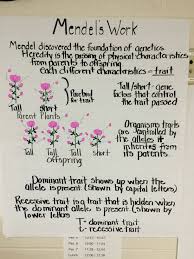 Mendel's Work
Mendel discovered the foundation of genetics
Heredity is the passing of physical characteristics
from parents to offspring
Each different characteristics = trait
Tall short
Parent Plants
Purebred
for trait
Tall/short - gene
factors that control
the trait passed
Tall Tall Tall short
Offspring
Organisms traits
are controlled by
the alleles it
inherits from
its parents
Dominant trait shows up when the
allele is present (shown by capital letters)
Recessive trait is a trait that is hidden when
the dominant allele is present (shown by
lower letters)
T- dominant trait
t- recessive trait